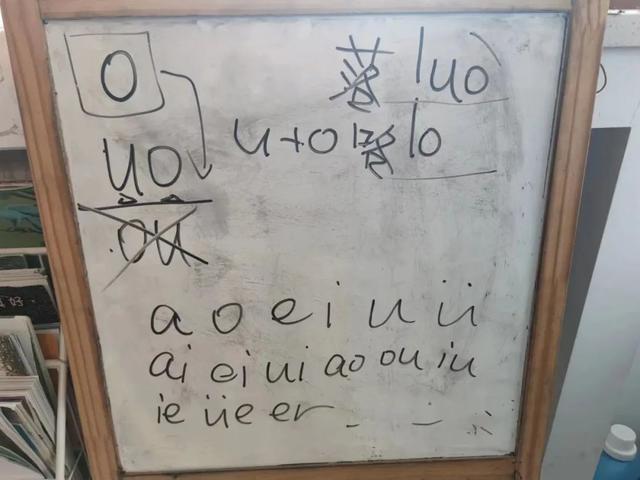 o
luo
uo
u+o
lo
ou
a o e i u ü
ai ei ui ao ou iu
ie üe er